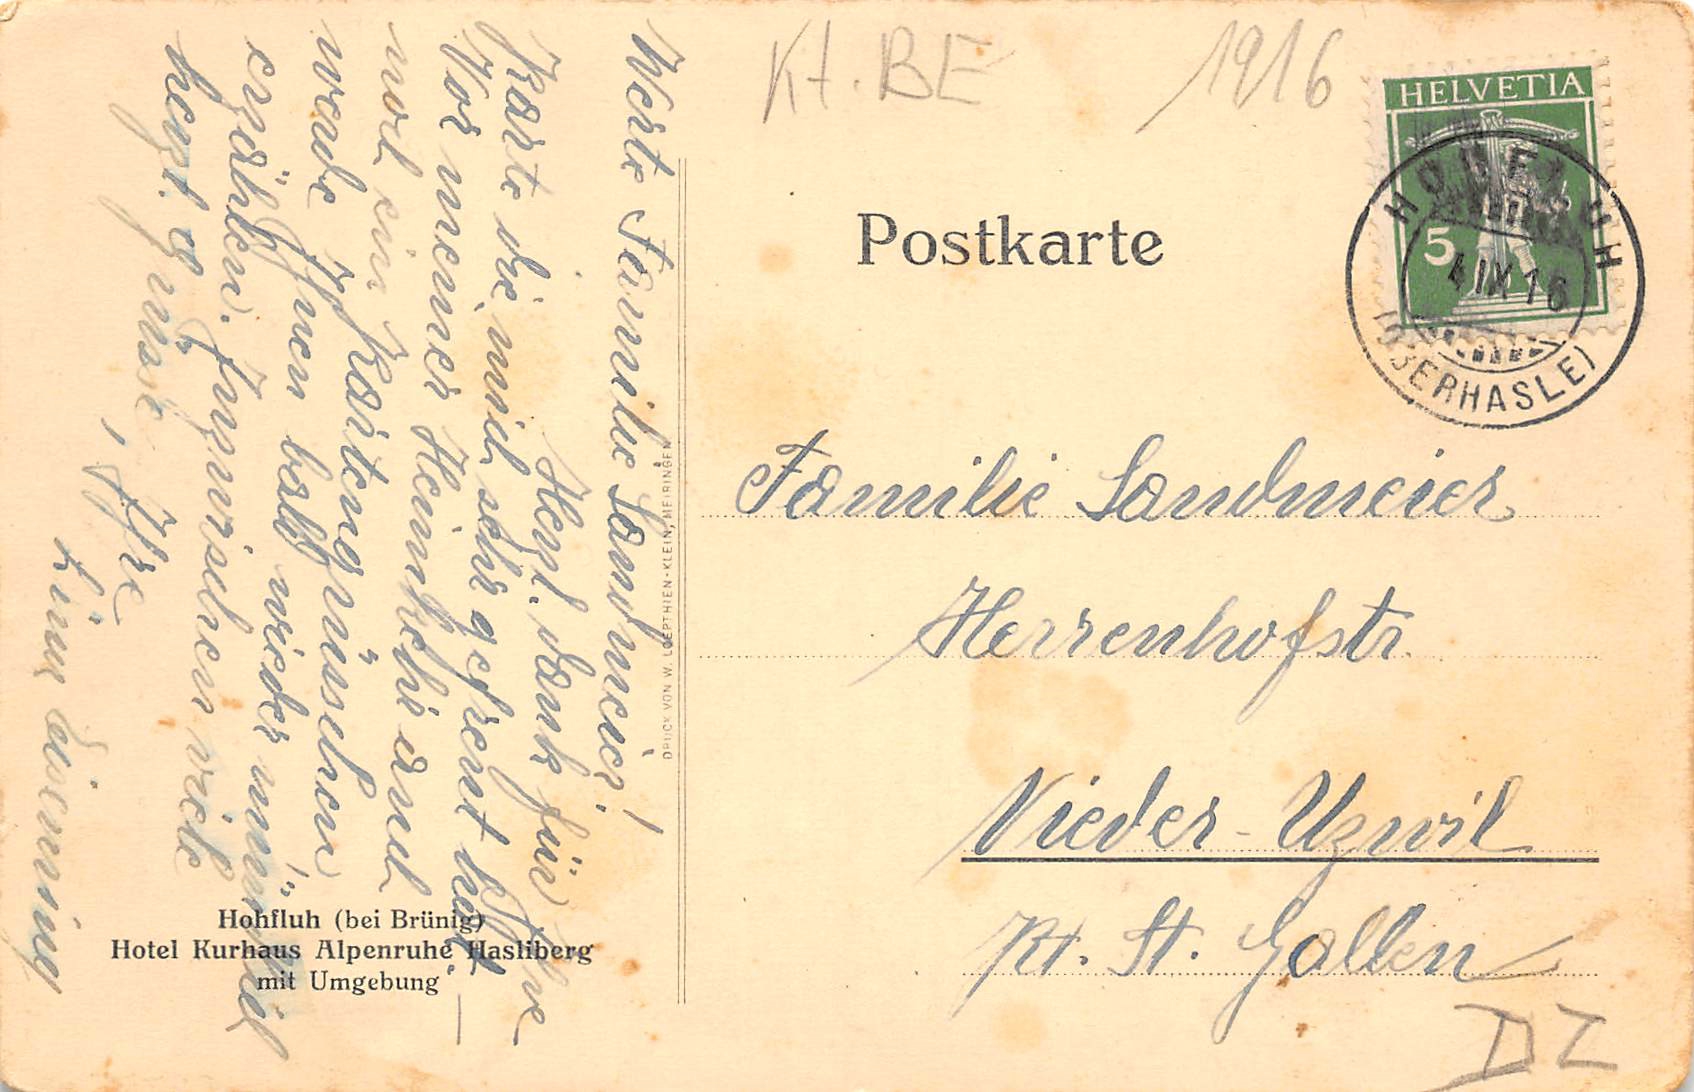 Kt. BE
1916
HELVETIA
5
HOHFLUH
4 IX 16
(OBERHASLE)
Postkarte
Familie Sandmeier
Herrenhofstr.
Nieder-Uzwil
Kt. St. Gallen
DZ
DRUCK VON W. LOEPTHIEN-KLEIN, MEIRINGEN
Werte Familie Sandmeier!
Herzl. Dank für Ihre
Karte die mich sehr gefreut hat.
Vor meiner Heimkehr auch
noch ein Kartengrüsschen
werde Ihnen bald wieder mündlich
erzählen. Inzwischen viele
herzl. Grüsse, Ihre
Lina
Hohfluh (bei Brünig)
Hotel Kurhaus Alpenruhe Hasliberg
mit Umgebung